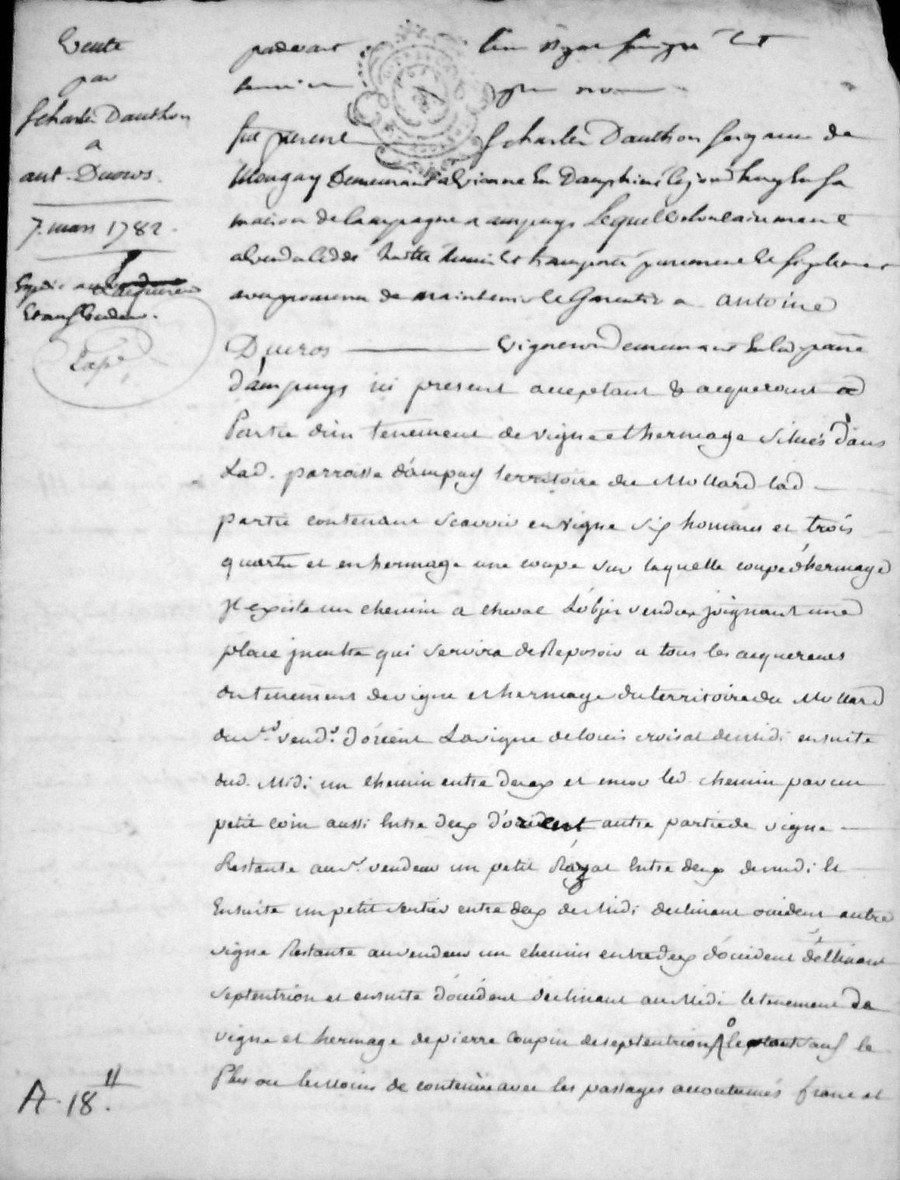 Vente
par
Sr charles Dauthon
a
ant. Ducros
7. mars 1782.
Expedié
Papé
A. 18.
pardevant
soussigné
fut présent Sr charles Dauthon Seigneur de
Mongay Demeurant a vienne En Dauphiné ce jourd'huy En sa
maison de Campagne a ampuys Lequel volontairement
a vendu cédé quitté remis Et transporté purement Et simplement
avec promesse de maintenir Et Garentir a antoine
Ducros vigneron demeurant En lad. parre
d'ampuys ici present acceptant & acquerant
Partie d'un tenement de vigne et hermage Situés dans
Lad. parroisse d'ampuys territoire du Mollard lad.
partie contenant Scavoir en vigne Six hommes et trois
quarts et en hermage une coupe sur laquelle coupé d'hermage
Jl existe un chemin a cheval Lobjet vendu joignant une
place qui Servira de Reposoir a tous les acquereurs
du tenement de vigne et hermage du territoire du Mollard
dud. Sr vendr. d'orient La vigne de louis croisat de Midi ensuite
dud. Midi un chemin entre deux et encor led. chemin par un
petit coin aussi Entre deux d'orient autre partie de vigne
Restante aud. Sr. vendeur un petit Entre deux de midi Et
Ensuite un petit Sentier entre deux de Midi declinant occident autre
vigne Restante au vendeur un chemin entre deux d'occident déclinant
Septentrion et ensuite d'occident declinant au Midi le tenement de
vigne et hermage de pierre Coupin de septentrion Sauf le
Plus ou le Moins de contenüe avec les passages accoutumés franc et